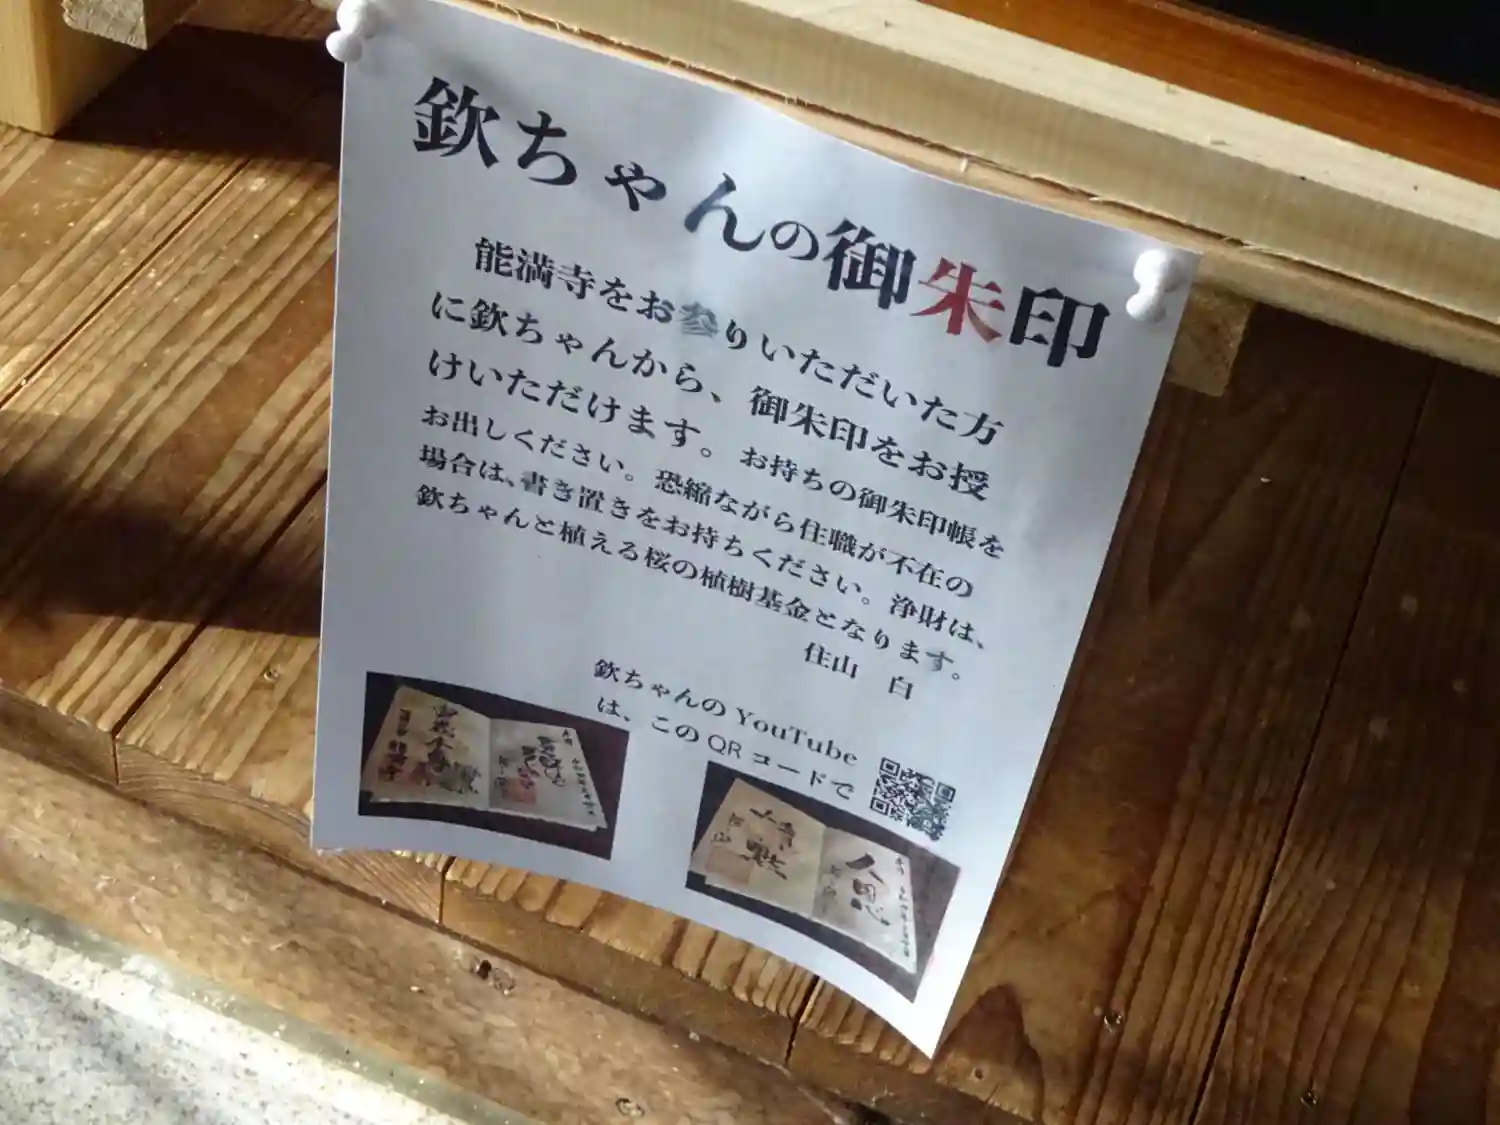 欽ちゃんの御朱印
能満寺をお参りいただいた方
に欽ちゃんから、御朱印をお授
けいただけます。お持ちの御朱印帳を
お出しください。恐縮ながら住職が不在の
場合は、書き置きをお持ちください。浄財は、
欽ちゃんと植える桜の植樹基金となります。
住山 白
欽ちゃんのYouTube
は、このQRコードで